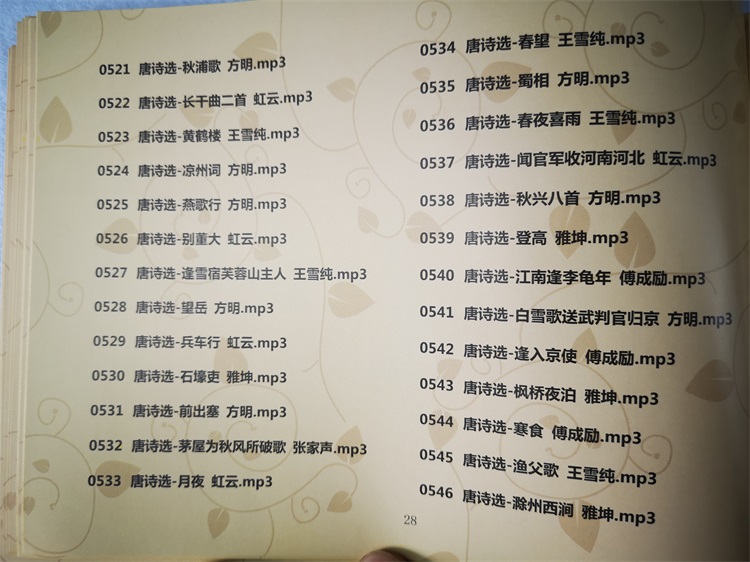 0521 唐诗选-秋浦歌 方明.mp3
0522 唐诗选-长干曲二首 虹云.mp3
0523 唐诗选-黄鹤楼 王雪纯.mp3
0524 唐诗选-凉州词 方明.mp3
0525 唐诗选-燕歌行 方明.mp3
0526 唐诗选-别董大 虹云.mp3
0527 唐诗选-逢雪宿芙蓉山主人 王雪纯.mp3
0528 唐诗选-望岳 方明.mp3
0529 唐诗选-兵车行 虹云.mp3
0530 唐诗选-石壕吏 雅坤.mp3
0531 唐诗选-前出塞 方明.mp3
0532 唐诗选-茅屋为秋风所破歌 张家声.mp3
0533 唐诗选-月夜 虹云.mp3
0534 唐诗选-春望 王雪纯.mp3
0535 唐诗选-蜀相 方明.mp3
0536 唐诗选-春夜喜雨 王雪纯.mp3
0537 唐诗选-闻官军收河南河北 虹云.mp3
0538 唐诗选-秋兴八首 方明.mp3
0539 唐诗选-登高 雅坤.mp3
0540 唐诗选-江南逢李龟年 傅成励.mp3
0541 唐诗选-白雪歌送武判官归京 方明.mp3
0542 唐诗选-逢入京使 傅成励.mp3
0543 唐诗选-枫桥夜泊 雅坤.mp3
0544 唐诗选-寒食 傅成励.mp3
0545 唐诗选-渔父歌 王雪纯.mp3
0546 唐诗选-滁州西涧 雅坤.mp3
28